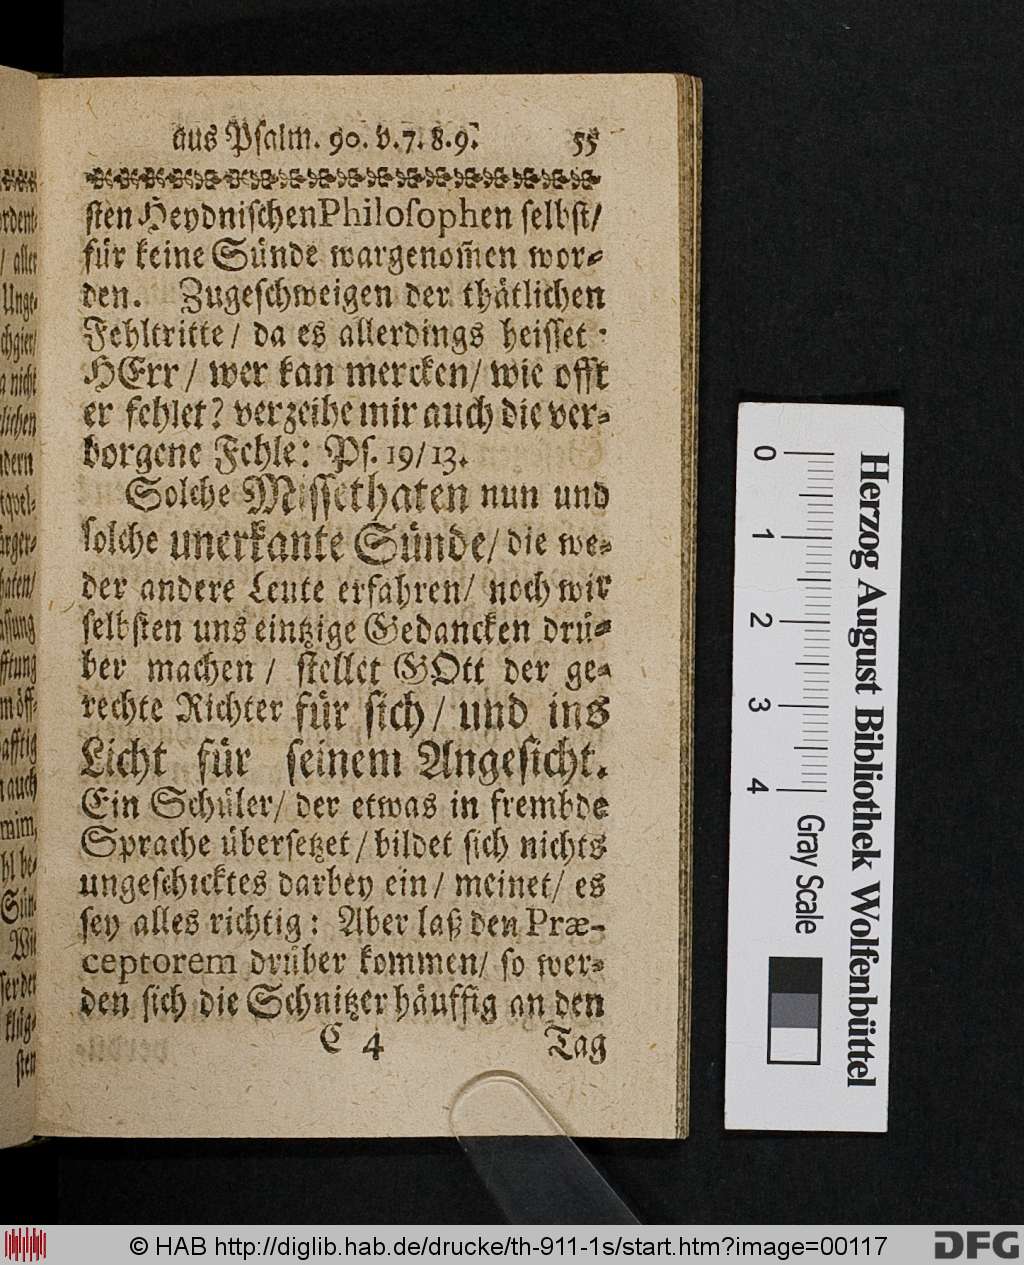 aus Psalm. 90. v. 7. 8. 9. 55
sten Heydnischen Philosophen selbst/
für keine Sünde wargenom̃en wor-
den. Zugeschweigen der thätlichen
Fehltritte/ da es allerdings heisset:
HErr/ wer kan mercken/ wie offt
er fehlet? verzeihe mir auch die ver-
borgene Fehle: Ps. 19/13.
Solche Missethaten nun und
solche unerkante Sünde/ die we-
der andere Leute erfahren/ noch wir
selbsten uns eintzige Gedancken drü-
ber machen/ stellet GOtt der ge-
rechte Richter für sich/ und ins
Licht für seinem Angesicht.
Ein Schüler/ der etwas in frembde
Sprache übersetzet/ bildet sich nichts
ungeschicktes darbey ein/ meinet/ es
sey alles richtig: Aber laß den Præ-
ceptorem drüber kommen/ so wer-
den sich die Schnitzer häuffig an den
C 4 Tag
0 1 2 3 4
Gray Scale
Herzog August Bibliothek Wolfenbüttel
© HAB http://diglib.hab.de/drucke/th-911-1s/start.htm?image=00117
DFG